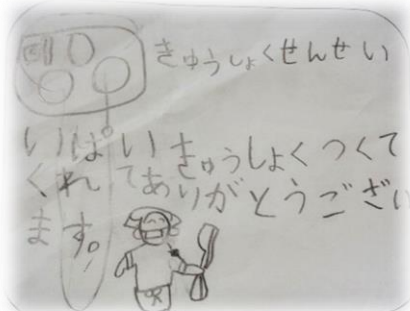 きゅうしょくせんせい
いぱいきゅうしょくつくて
くれてありがとうござい
ます。